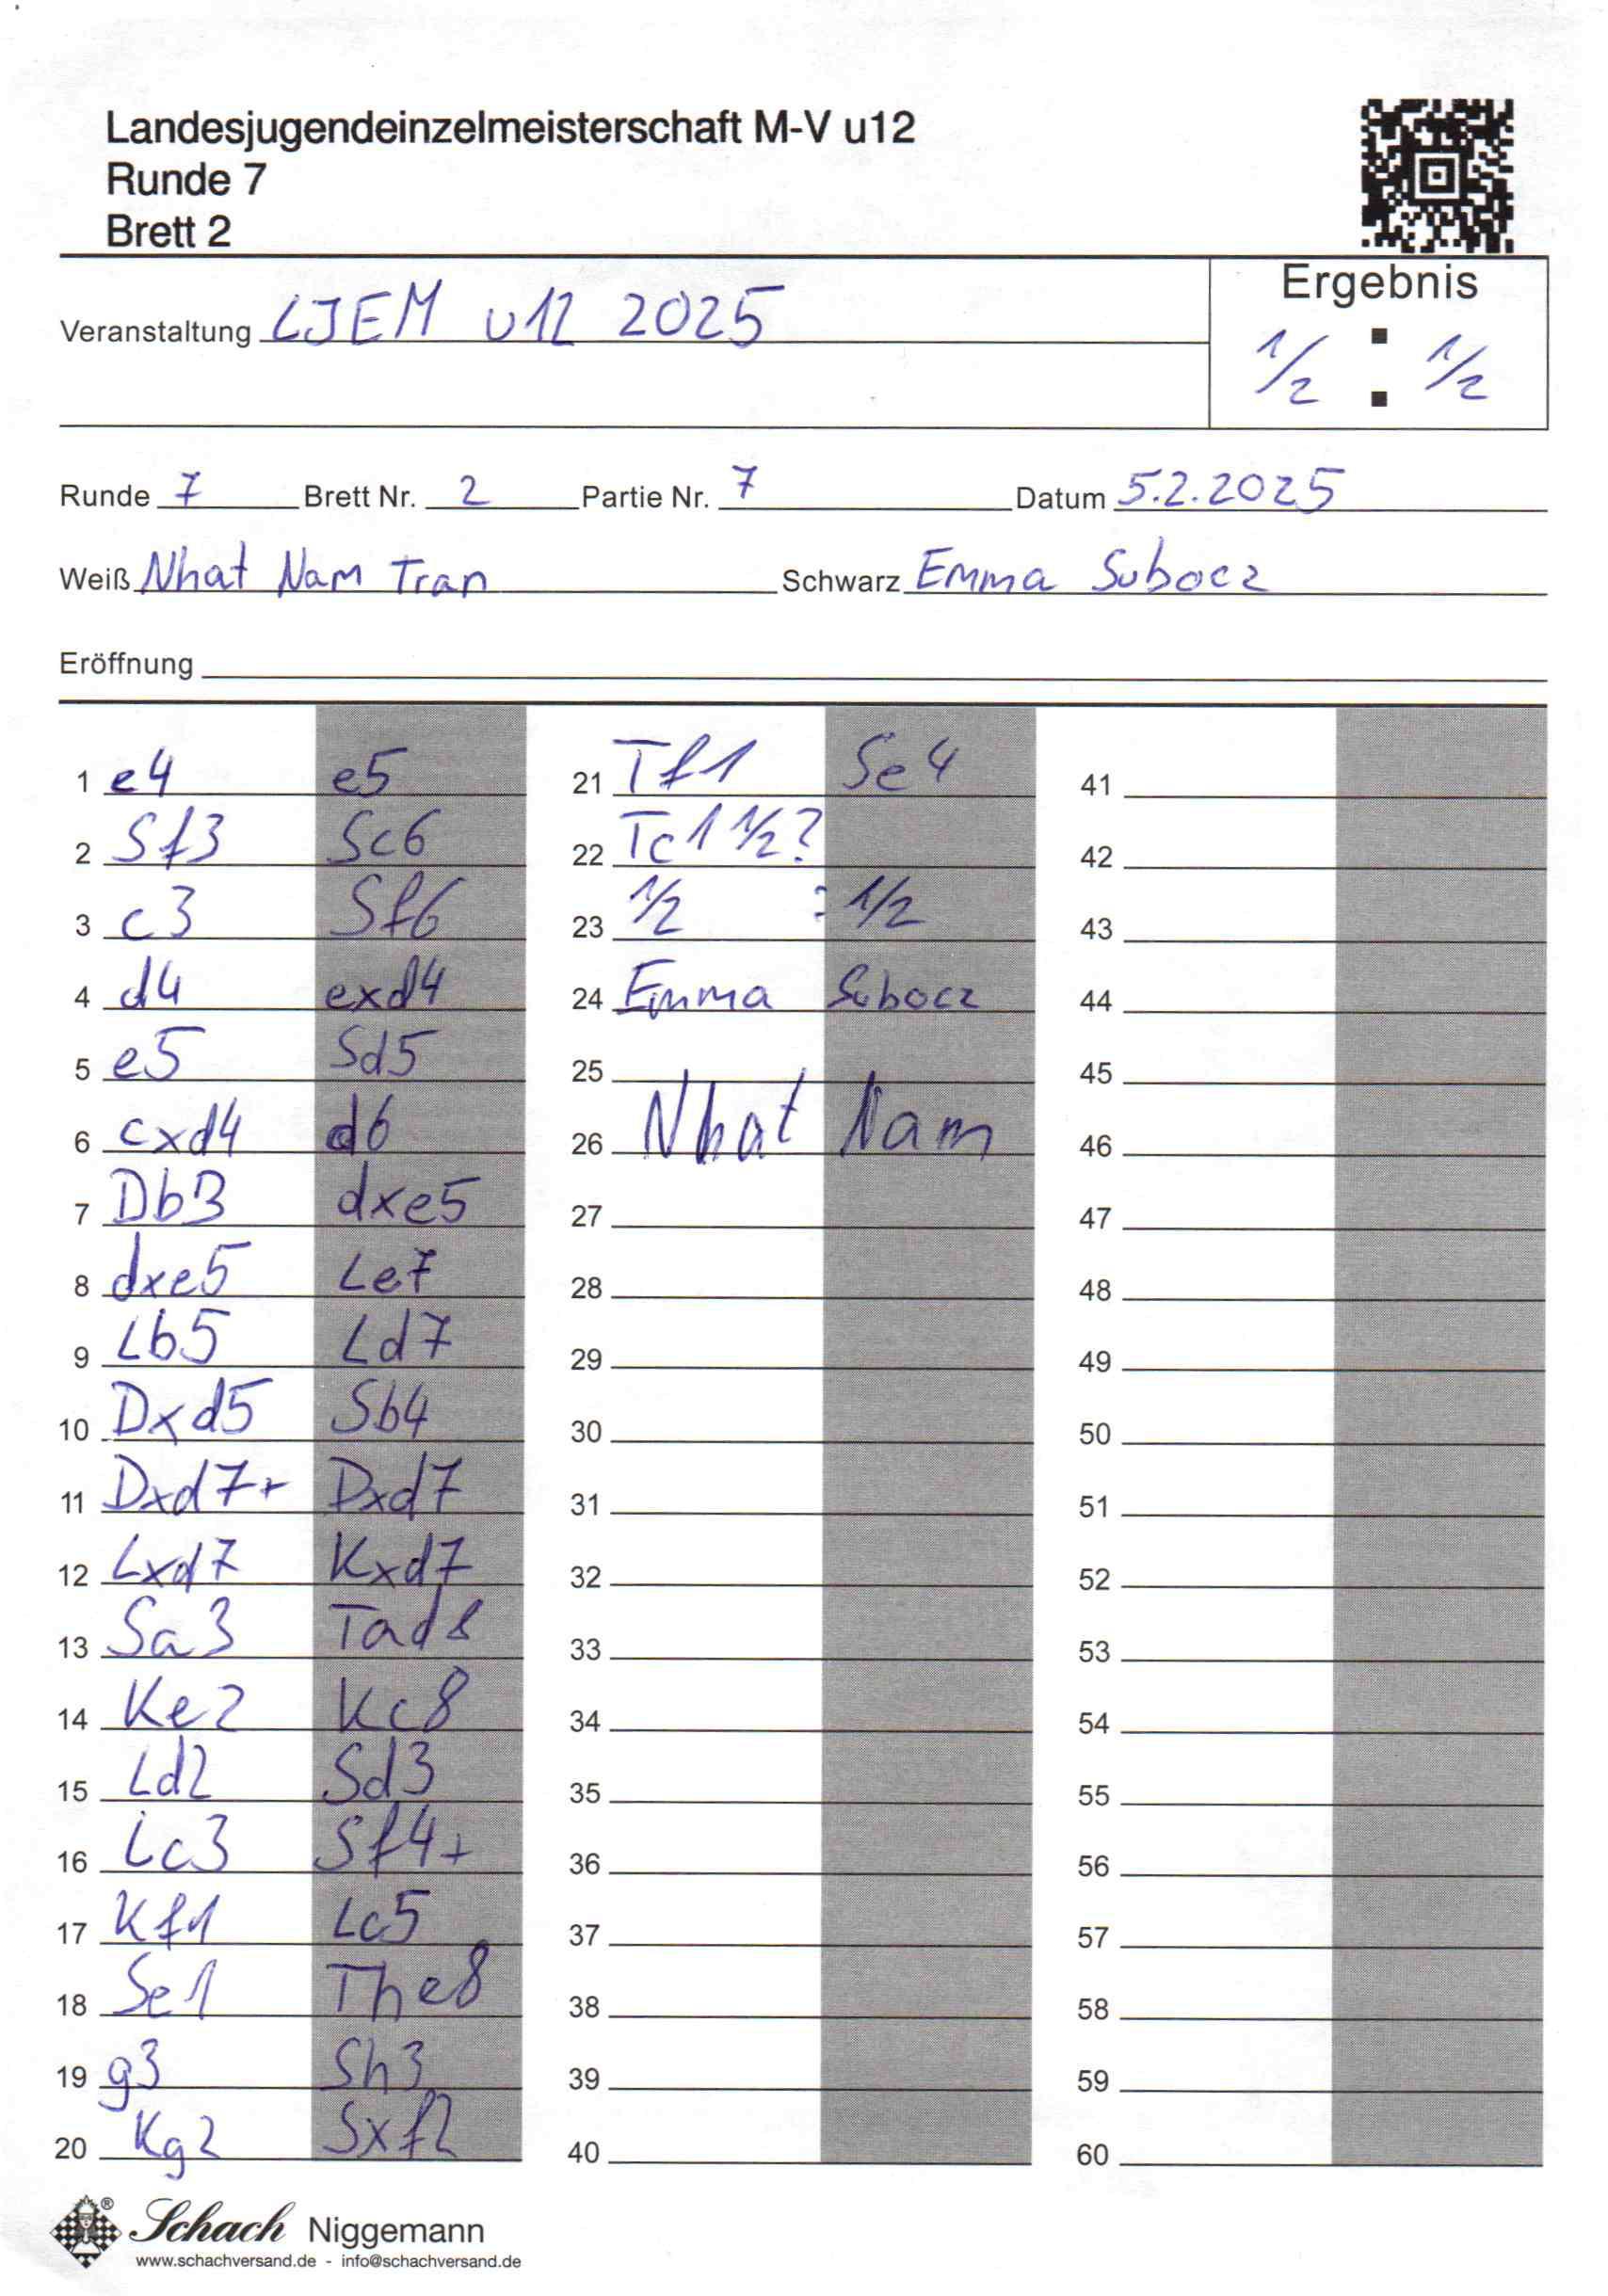 Landesjugendeinzelmeisterschaft M-V u12
Runde 7
Brett 2
Ergebnis
Veranstaltung LJEM u12 2025
1/2 : 1/2
Runde 7 Brett Nr. 2 Partie Nr. 7 Datum 5.2.2025
Weiß Nhat Nam Tran Schwarz Emma Subocz
Eröffnung
1 e4 e5 21 Tf1 Se4 41
2 Sf3 Sc6 22 Tc1 1/2? 42
3 c3 Sf6 23 1/2 : 1/2 43
4 d4 exd4 24 Emma Subocz 44
5 e5 Sd5 25 45
6 cxd4 d6 26 Nhat Nam 46
7 Db3 dxe5 27 47
8 dxe5 Le7 28 48
9 Lb5 Ld7 29 49
10 Dxd5 Sb4 30 50
11 Dxd7+ Dxd7 31 51
12 Lxd7 Kxd7 32 52
13 Sa3 Tad8 33 53
14 Ke2 Kc8 34 54
15 Ld2 Sd3 35 55
16 Lc3 Sf4+ 36 56
17 Kf1 Lc5 37 57
18 Se1 The8 38 58
19 g3 Sh3 39 59
20 Kg2 Sxf2 40 60
® Schach Niggemann
www.schachversand.de - info@schachversand.de